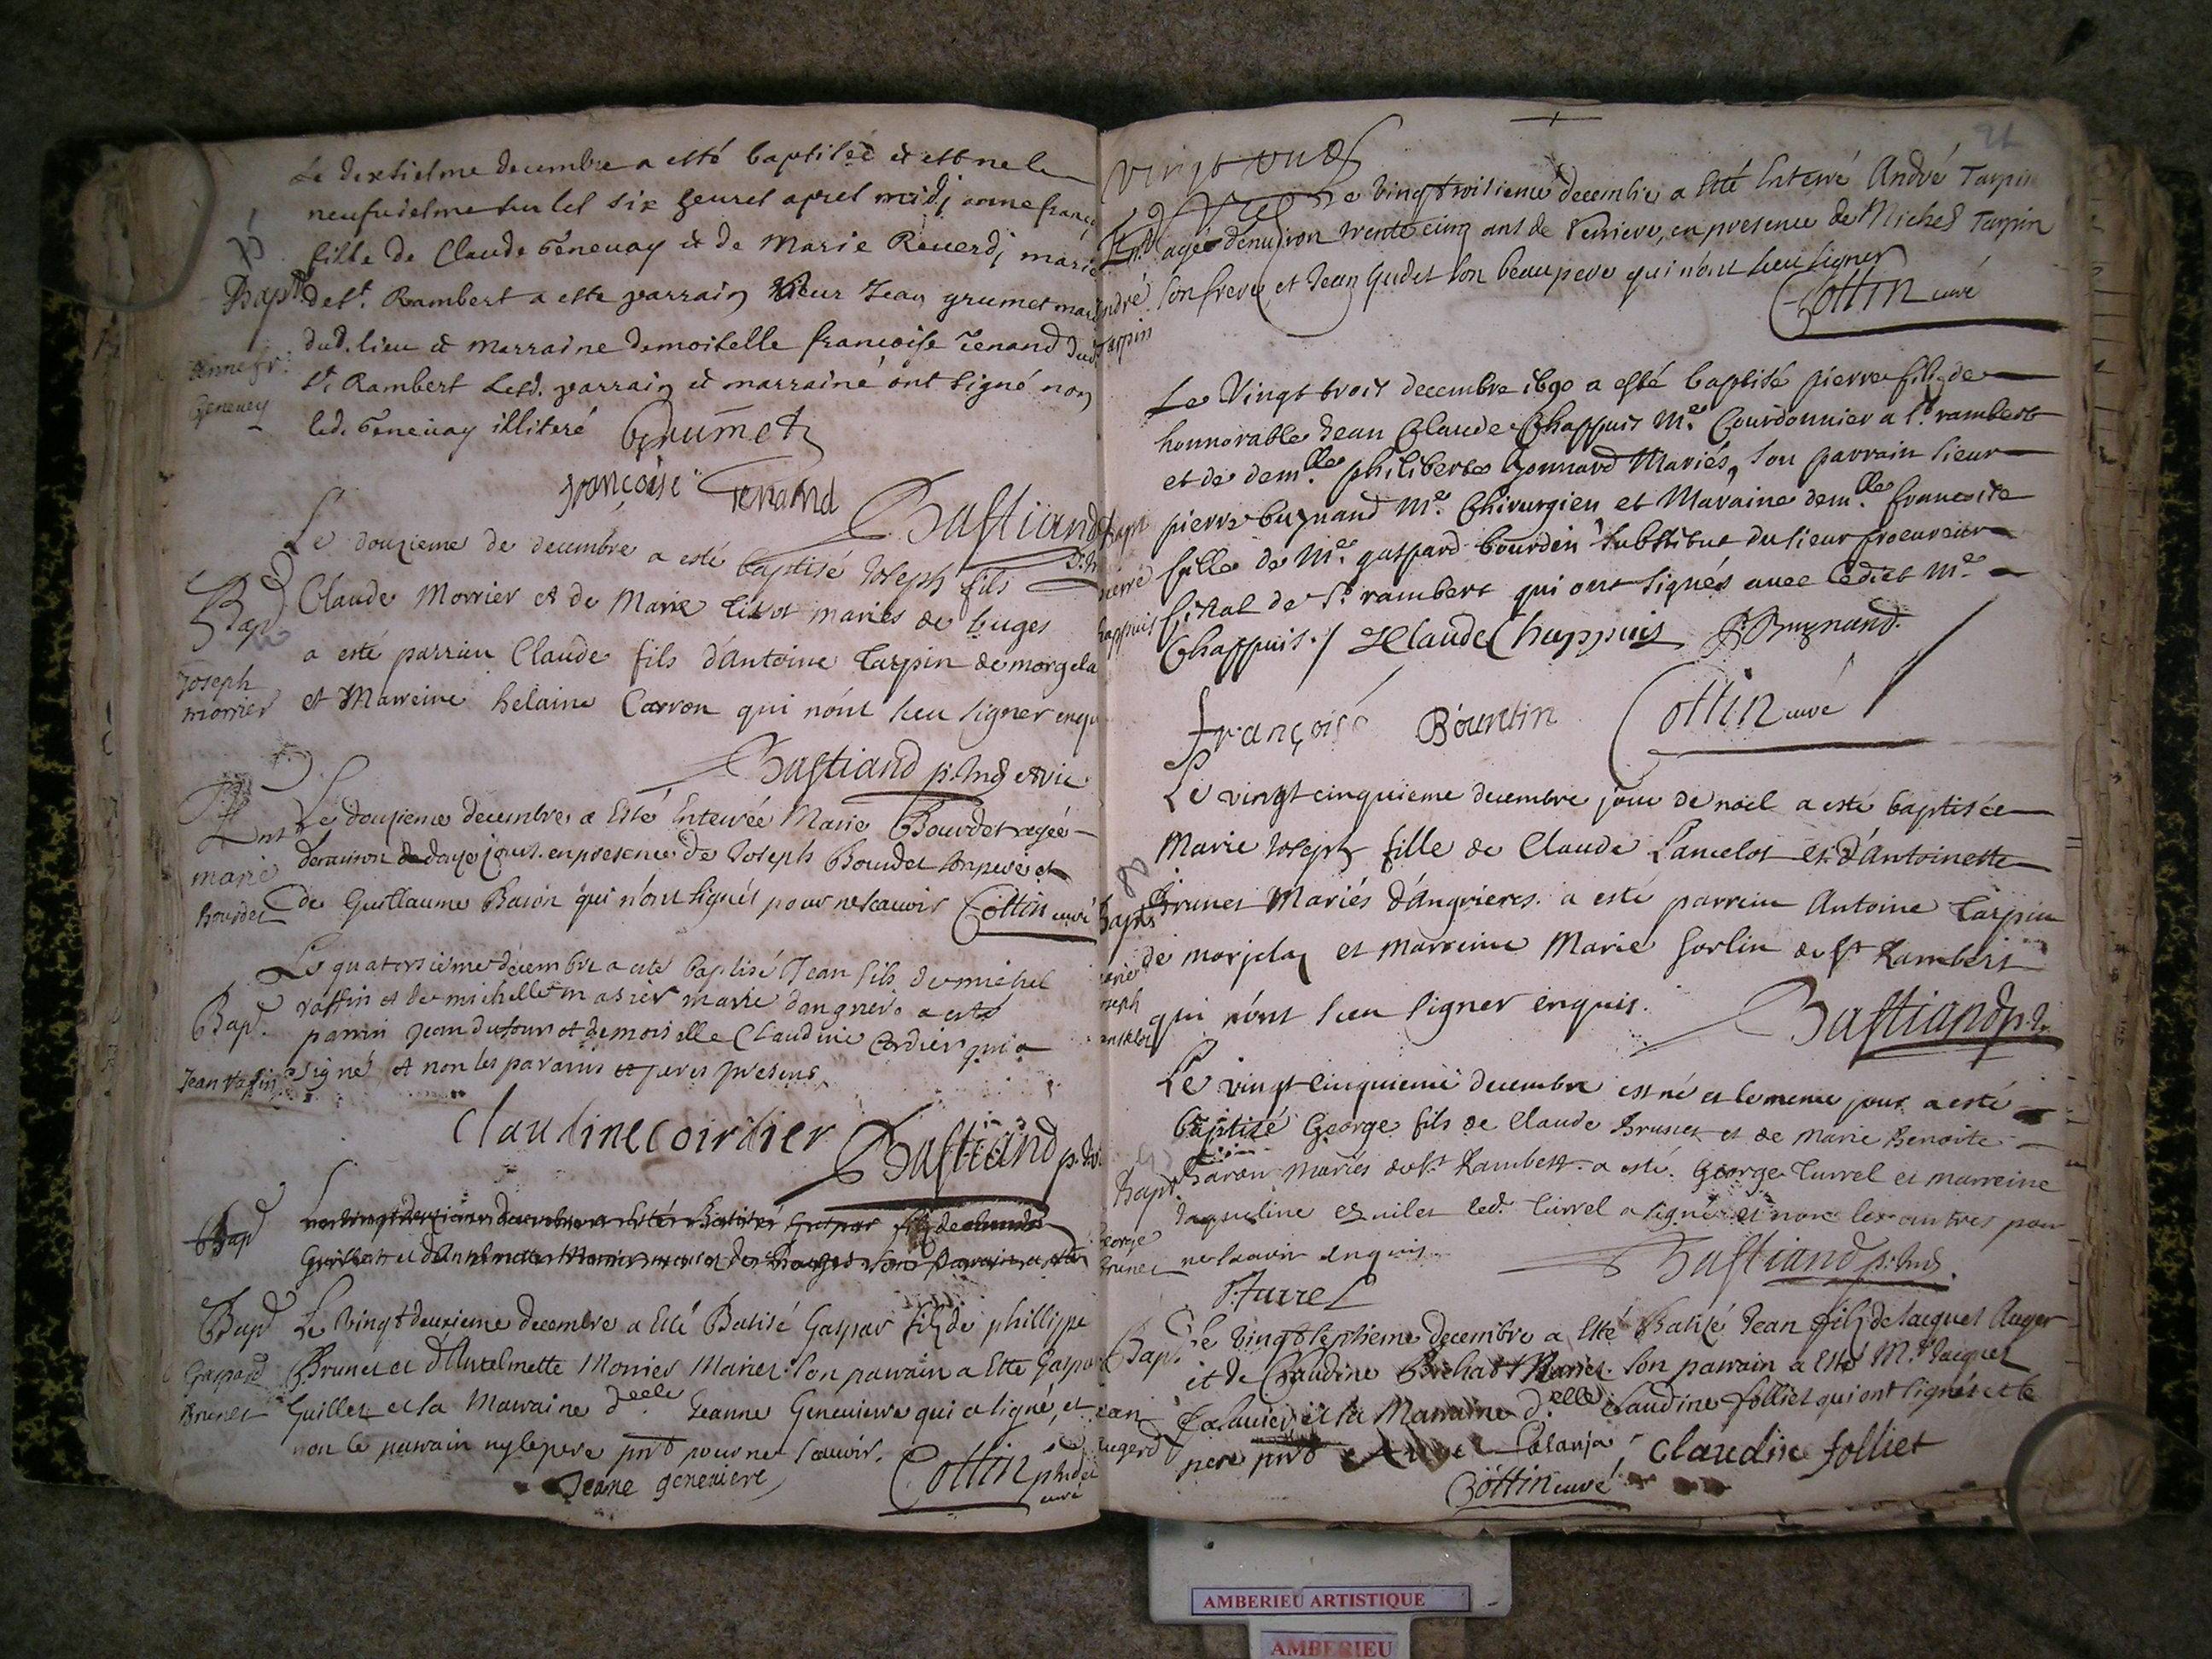 Le dixhiesme decembre a esté baptisée et est nee le
neufviesme sur les six heures apres midj anne franç
fille de Claude Geneuay et de Marie Reuerdj mariés
Bapt de St. Rambert a esté parrain sieur Jean grumet
dud. lieu et marraine demoiselle françoise Tenand dud
Anne fr. Geneuey
St Rambert Lesd. parrain et marraine ont signé non
led. Geneuay illiteré Grumet
françoise Tenand
Bastiand
Le douzieme de decembre a esté baptisé Joseph fils
Bap Claude Morrier et de Marie Tissot mariés de buges
a esté parrain Claude fils d'Antoine Tarpin de morgela
Joseph morrier
et Marreine helaine Carron qui n'ont sceu signer enqu
Bastiand p. et vic
Le douzieme decembre a Esté Enterrée Marie Bourdet agée
Ent
denuiron de douze jours en presence de Joseph Bourdet son pere et
marie Bourdet
de Guillaume Baron qui n'ont signés pour ne scauoir Cottin curé
Le quatorsieme decembre a esté baptisé Jean fils de michel
Bap. vaffin et de michelle masier marié dangriere a esté
parrin Jean dufour et demoiselle Claudine Cordier qui a
Jean vaffin signé et non les parains et peres presens
Claudine coirdier Bastiand
Bap
Le Vingtdeuxieme decembre a Esté Batisé Gaspar fils de
Guillet
Bap Le Vingtdeuxieme decembre a Esté Batisé Gaspar fils de phillippe
Gaspard Brunet et d'Antelmette Morrier Mariez son parrain a Esté Gaspar
Brunet Guillet et la Marraine delle Jeanne Geneuieve qui a signé, et
non le parrain ny le pere pnt pour ne scauoir.
Jeane genevieve Cottin curé
21
Vingt un
Le Vingttroisieme decembre a Esté Enterré André Tarpin
Ent agé denuiron trente cinq ans de Verriere, en presence de Michel Tarpin
André Tarpin
son frere et Jean Gudet son beaupere qui n'ont sceu signer
Cottin curé
Le Vingt trois decembre 1690 a esté baptisé pierre fils de
honnorable Jean Claude Chappuis Me. Courdonnier a st rambert
et de demlle. philiberte bonnard Mariés, son parrain sieur
pierre bugnand Me. Chirurgien et Maraine demlle francoise
fille de Me. gaspard bourdin substitut du sieur procureur
fiscal de st rambert qui ont signés auec ledict Me.
Chappuis ./ JClaude Chappuis P. Bugnand
françoise Bourdin Cottin curé
Le vingt cinquieme decembre jour de noel a esté baptisée
Marie Joseph fille de Claude Lancelot et d'Antoinette
Bapt Brunet Mariés d'Angrieres. a esté parrein Antoine Tarpin
de morjelaz et Marreine Marie sorlin de St Rambert
qui n'ont sceu signer enquis.
Bastiand
Le vingt cinquieme decembre est né et le meme jour a esté
baptisé George fils de Claude Brunet et de Marie Benoite
Bapt Baron mariés de St Rambert. a esté. George Turrel et marreine
Jaqueline led. Turrel a signé et non les autres pour
George Brunet
ne scauoir enquis
Turrel Bastiand
Bap. Le Vingtseptieme decembre a Esté Batisé Jean fils de Jacques Auger
et de Claudine Brehat Mariez. son parrain a Esté Mr. Jacques
et la Marraine d.elle Claudine folliet qui ont signés et le
pere pnt Claudine folliet
Cottin curé
AMBERIEU ARTISTIQUE
AMBERIEU